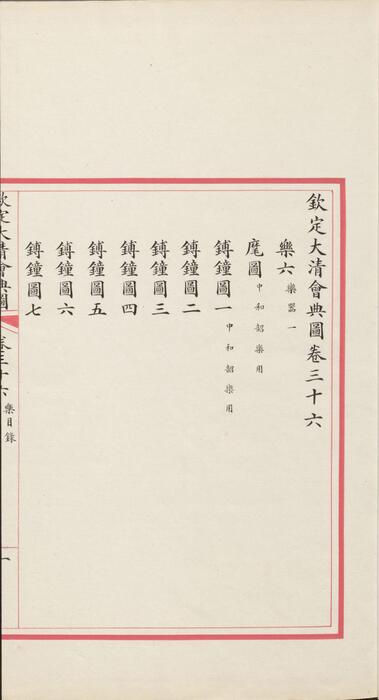 欽定大清會典圖卷三十六
樂六樂器一
麾圖中和韶樂用
鎛鐘圖一中和韶樂用
鎛鐘圖二
鎛鐘圖三
鎛鐘圖四
鎛鐘圖五
鎛鐘圖六
鎛鐘圖七
欽定大清會典圖
卷三十六 樂目錄
一